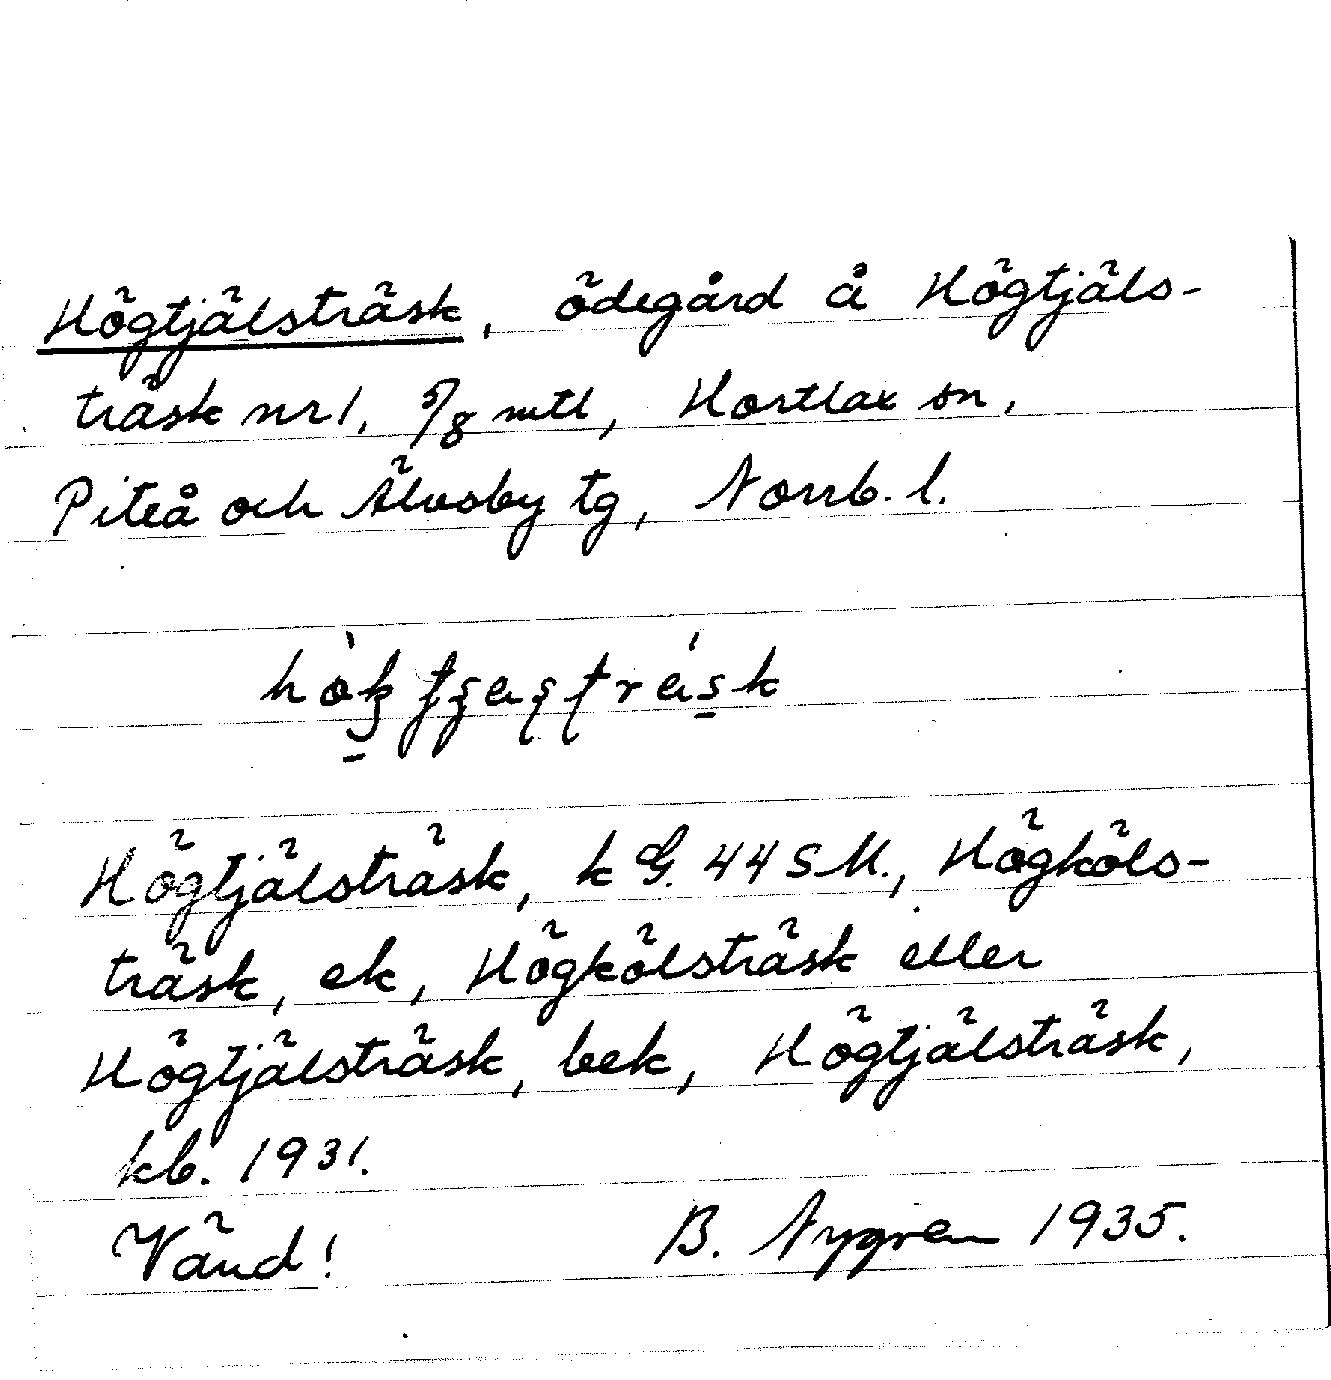 Högtjälsträsk, ödegård å Högtjäls-
träsk nr 1, 5/8 mtl, Hortlax sn,
Piteå och Älvsby tg, Norrb. l.
Högtjälsträsk, k G. 44 S M., Högköls-
träsk, ek, Högkölsträsk eller
Högtjälsträsk, bek, Högtjälsträsk,
kb. 1931.
Vänd! B. Nygren 1935.